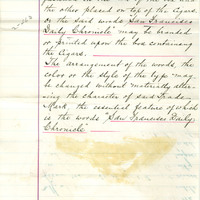 the other placed on top of the Cigars.
Or the said words "San Francisco
Daily Chronicle" may be branded
or printed upon the box containing
the Cigars. —
The arrangement of the words, the
color or the style of the type may
be changed without materially alter-
ing the character of said Trade-
Mark, the essential feature of which
is the words "San Francisco Daily
Chronicle